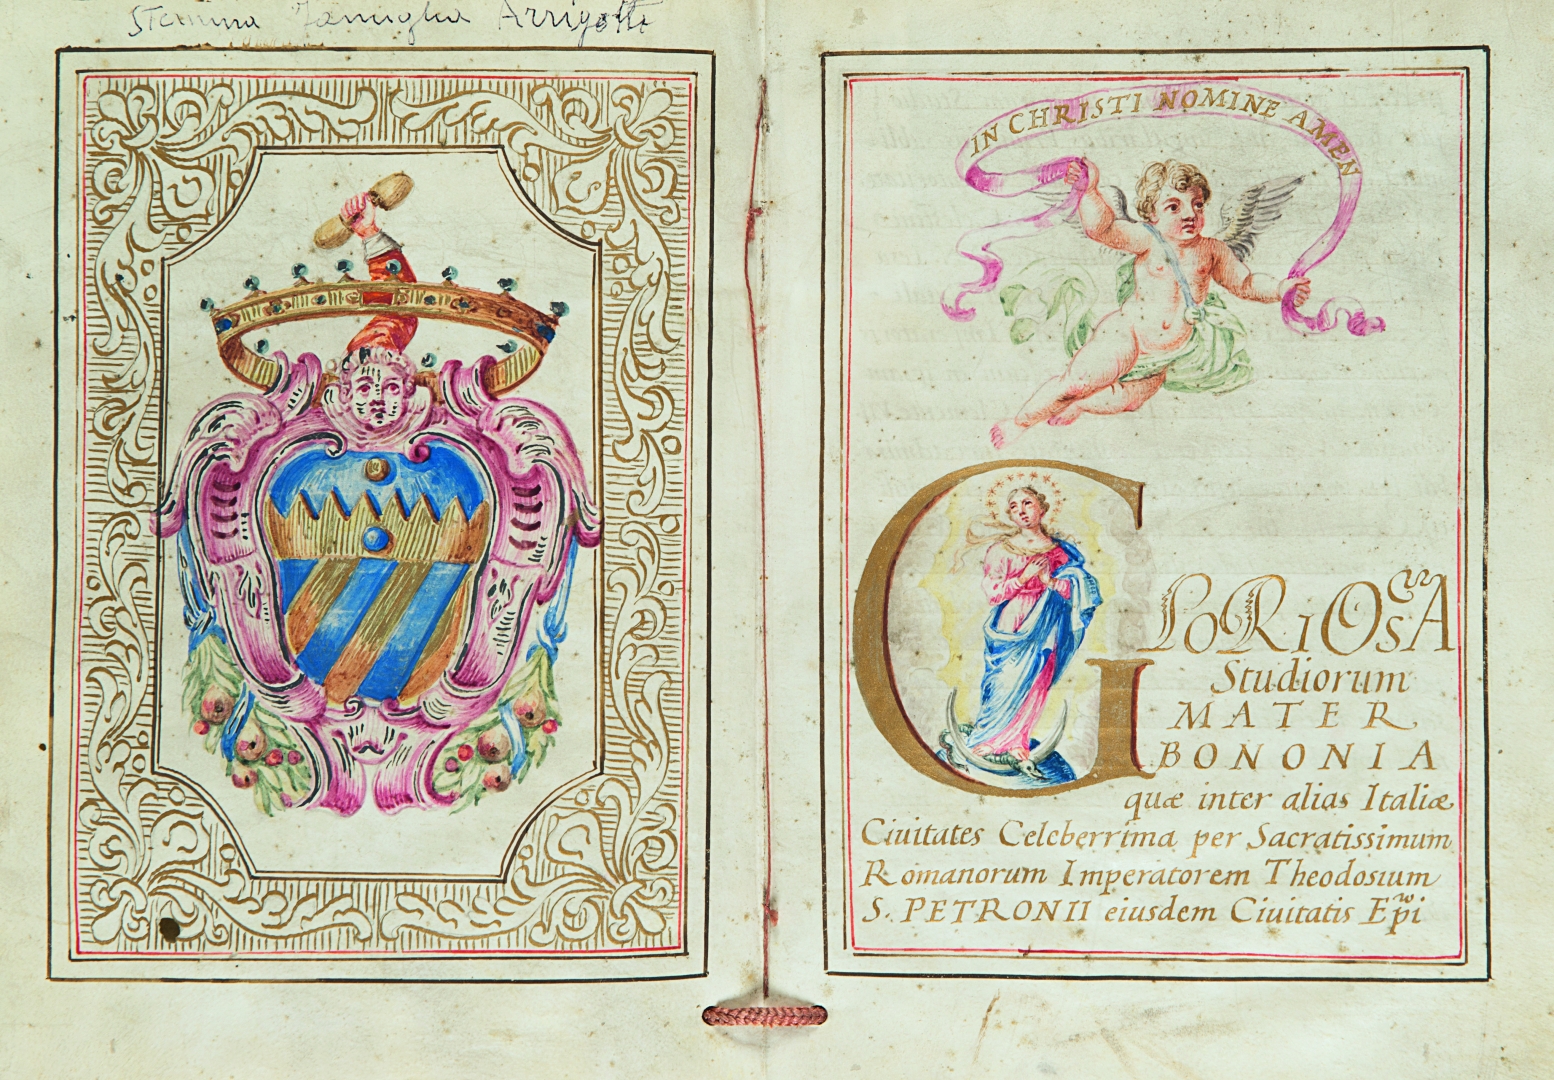 Stemma Famiglia Arrigotti
IN CHRISTI NOMINE AMEN
GLORIOSA
Studiorum
MATER
BONONIA
quæ inter alias Italiæ
Ciuitates Celeberrima per Sacratissimum
Romanorum Imperatorem Theodosium
S. PETRONII eiusdem Ciuitatis Epi